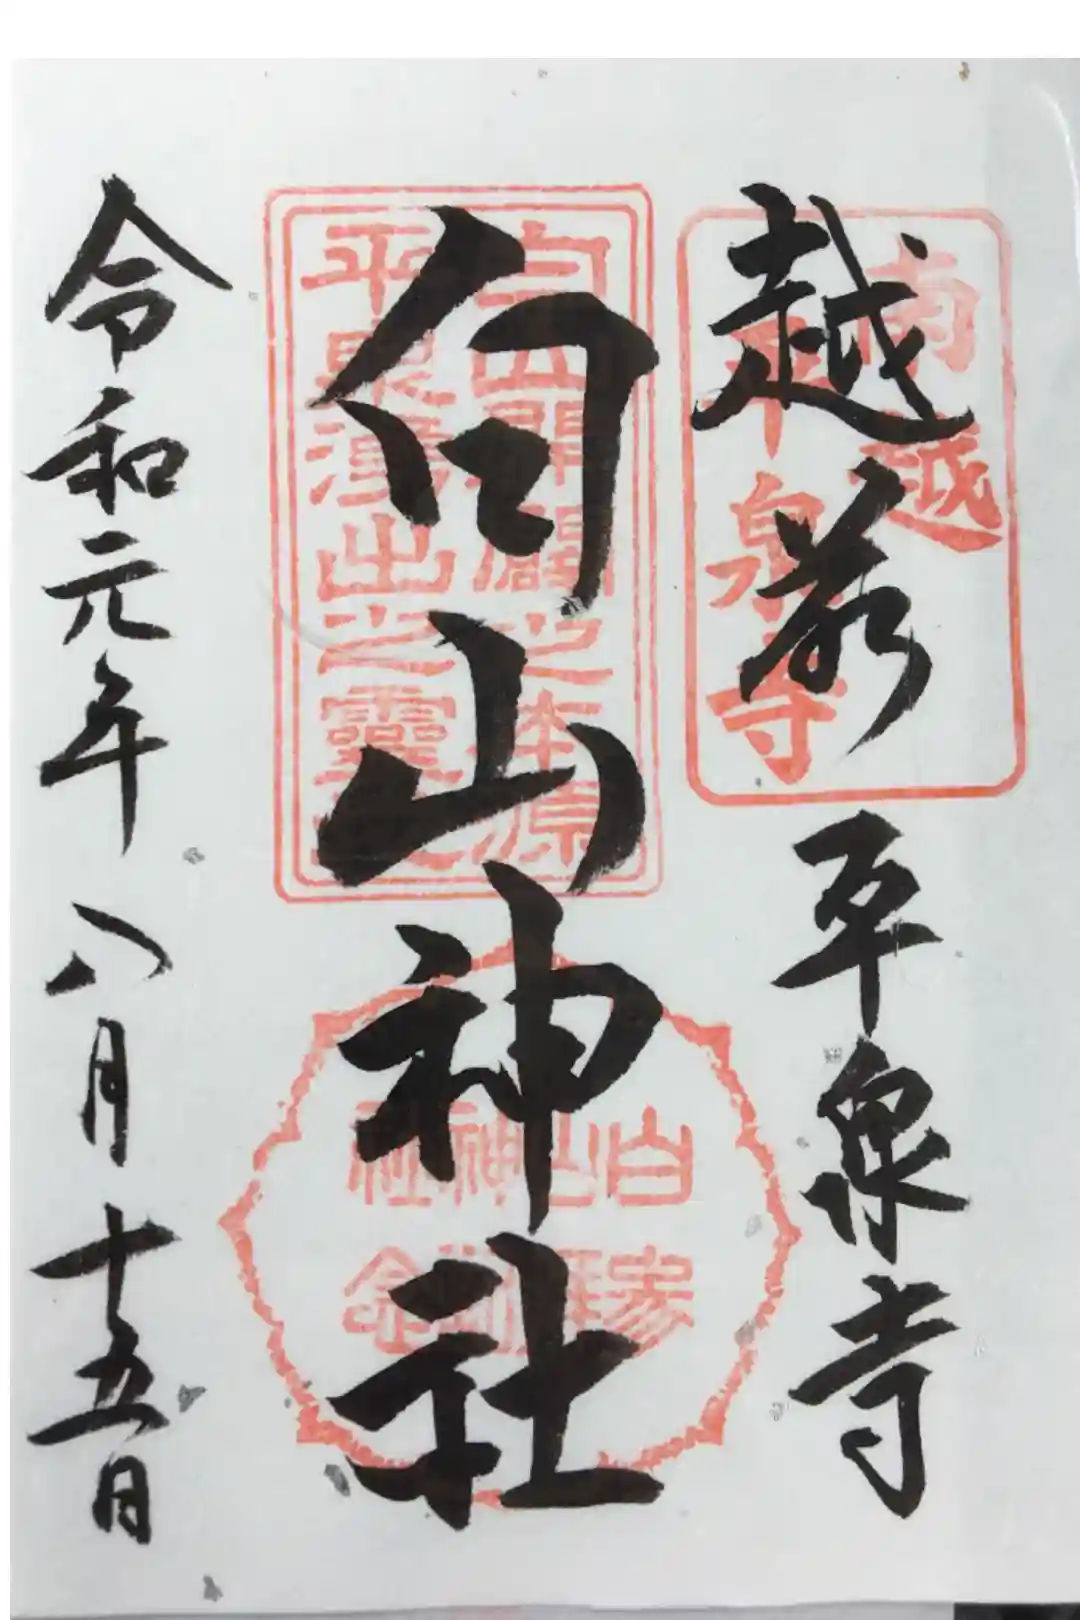 越前
平泉寺
南越
平泉寺
白山神社
白山開闢之本原
平泉湧出之靈
白山神社
参拝
念
令和元年八月十五日